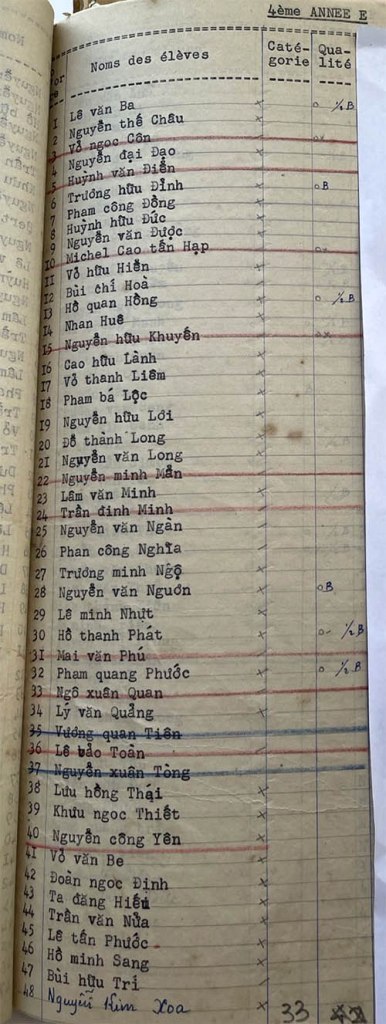 4ème ANNEE E
Noms des élèves Caté- Qua-
gorie lité
1 Lê văn Ba x o ½ B
2 Nguyễn thế Châu
3 Võ ngọc Côn
4 Nguyễn đại Đạo x
5 Huỳnh văn Điển
6 Trương hữu Đỉnh oB
7 Phạm công Đồng x
8 Huỳnh hữu Đức x
9 Nguyễn văn Được
10 Michel Cao tấn Hạp
11 Võ hữu Hiền
12 Bùi chí Hoà x
13 Hồ quan Hồng o ½ B
14 Nhan Huê x
15 Nguyễn hữu Khuyến
16 Cao hữu Lành x
17 Võ thanh Liêm x
18 Phạm bá Lộc x
19 Nguyễn hữu Lợi
20 Đỗ thành Long x
21 Nguyễn văn Long x
22 Nguyễn minh Mẫn
23 Lâm văn Minh x
24 Trần đình Minh
25 Nguyễn văn Ngân x
26 Phan công Nghĩa x
27 Trương minh Ngộ
28 Nguyễn văn Nguơn oB
29 Lê minh Nhựt x
30 Hồ thanh Phát x o ½ B
31 Mai văn Phú
32 Phạm quang Phước x o ½ B
33 Ngô xuân Quan
34 Lý văn Quảng x
35 Vương quan Tiên
36 Lê bảo Toàn
37 Nguyễn xuân Tòng
38 Lưu hồng Thái x
39 Khưu ngọc Thiết x
40 Nguyễn công Yên x
41 Võ văn Be
42 Đoàn ngọc Định x
43 Tạ đăng Hiếu x
44 Trần văn Nửa x
45 Lê tấn Phước x
46 Hồ minh Sang x
47 Bùi hữu Trí
48 Nguyễn Kim Xoa x 33